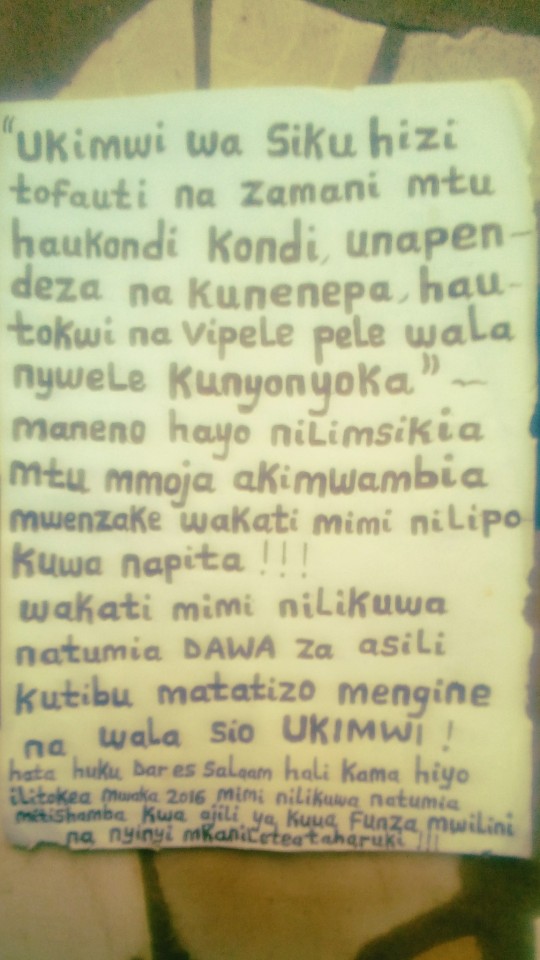 "UKimwi wa Siku hizi
tofauti na zamani mtu
haukondi kondi, unapen-
deza na kunenepa, hau-
tokwi na vipele pele wala
nywele kunyonyoka" ~
maneno hayo nilimsikia
mtu mmoja akimwambia
mwenzake wakati mimi nilipo-
kuwa napita !!!
wakati mimi nilikuwa
natumia DAWA za asili
kutibu matatizo mengine
na wala sio UKIMWI !
hata huku Dar es Salaam hali kama hiyo
ilitokea mwaka 2016 mimi nilikuwa natumia
mitishamba kwa ajili ya kuua Funza mwilini
na nyinyi mkanileteataharuki !!!